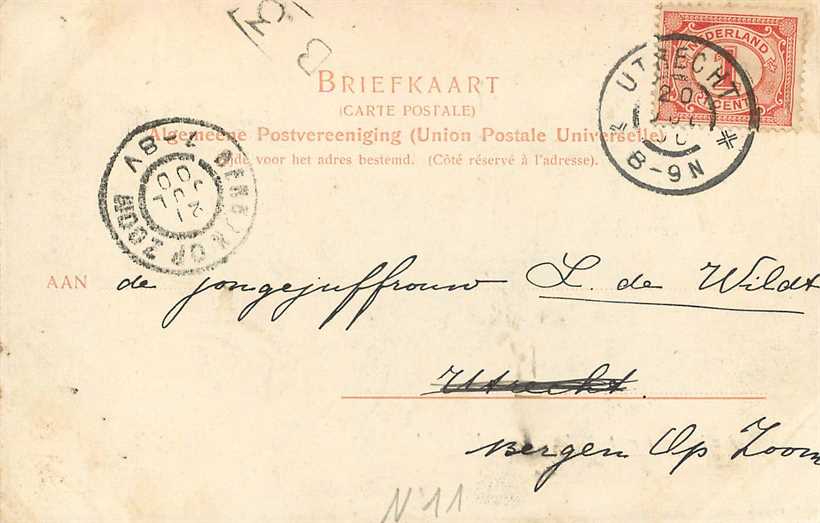 B 3
NEDERLAND
1
CENT
UTRECHT
20
8-9N
BRIEFKAART
(CARTE POSTALE)
Algemeene Postvereeniging (Union Postale Universelle)
Zijde voor het adres bestemd. (Côté réservé à l'adresse).
BERGEN OP ZOOM
7-8V
21
JUL
AAN de jongejuffrouw L. de Wildt
Utrecht
Bergen Op Zoom
N 11